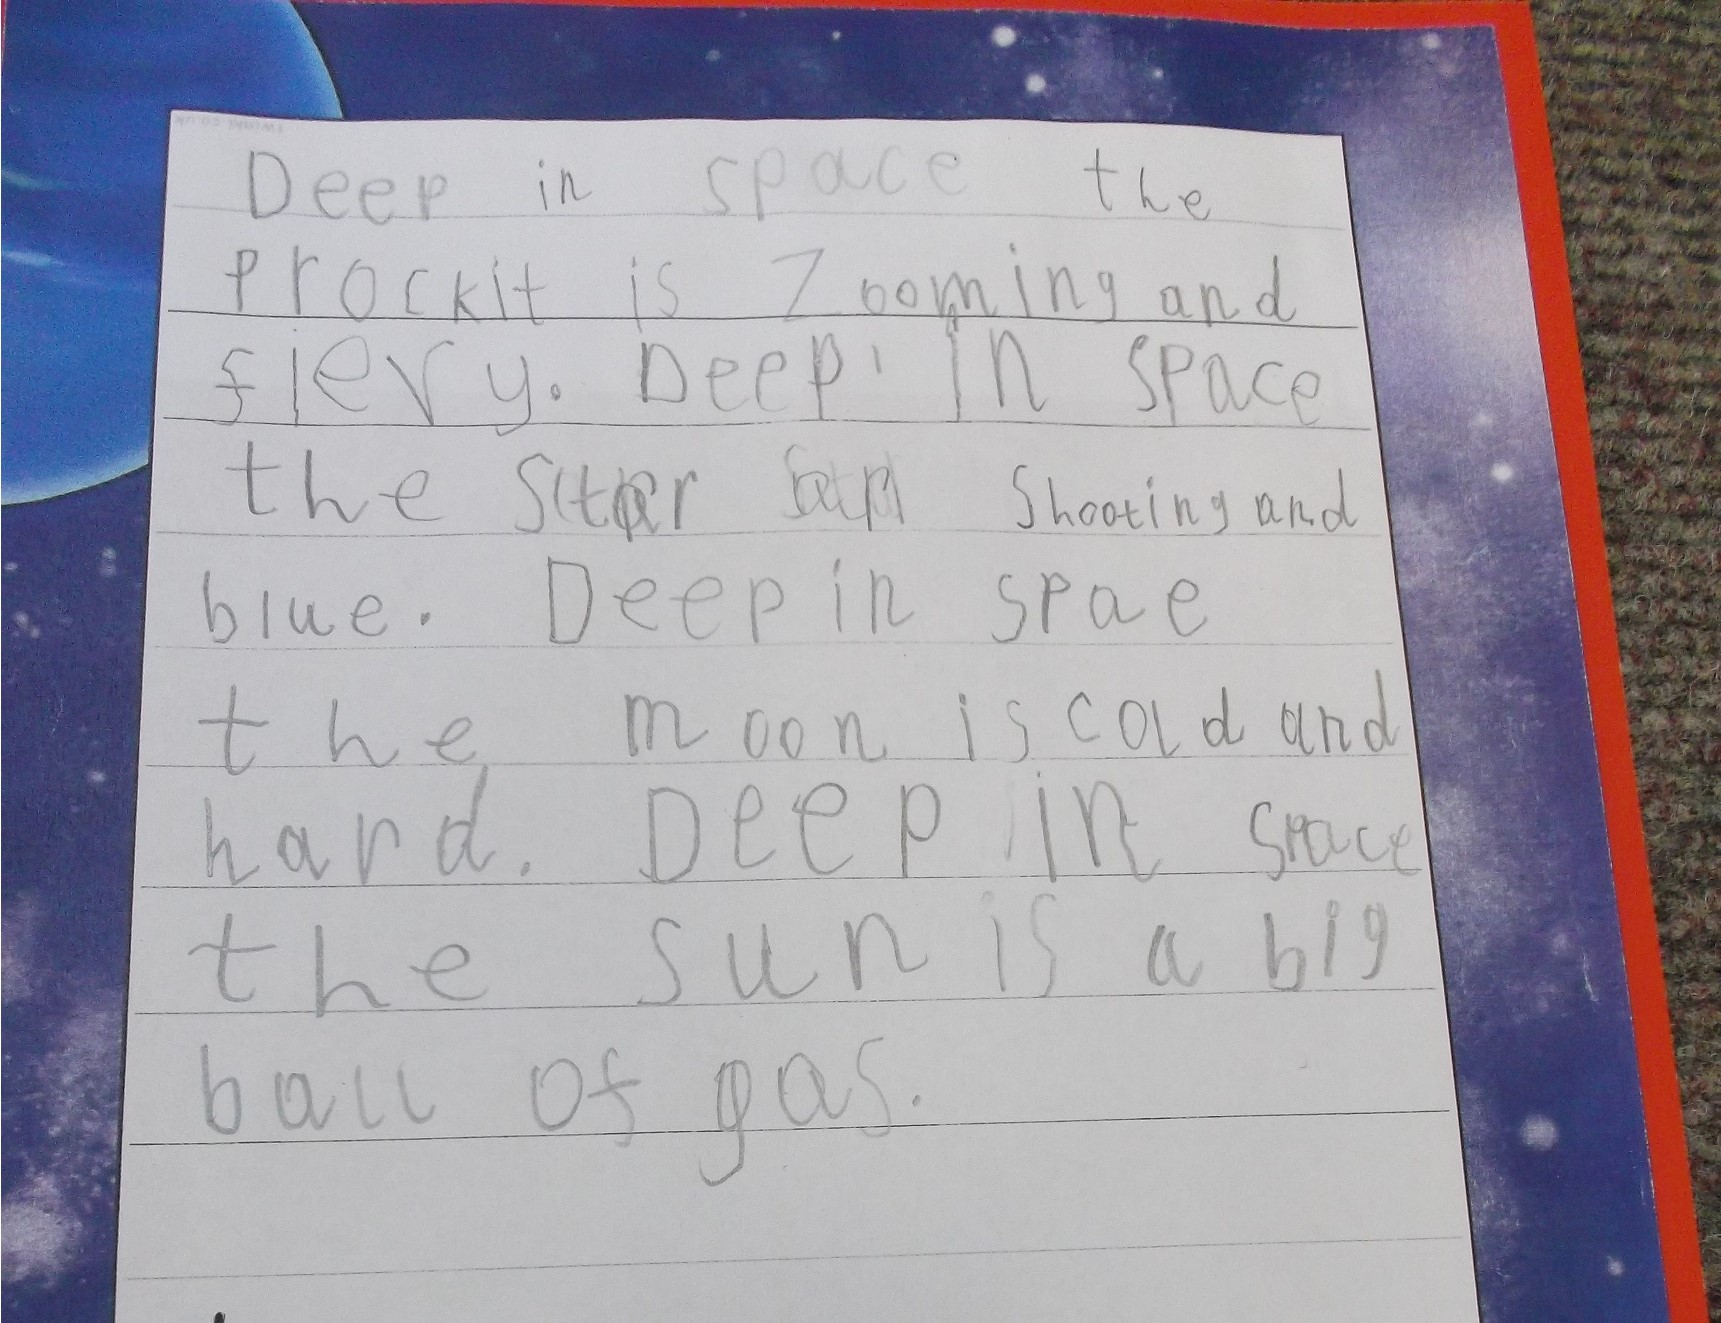 Deep in space the
Prockit is Zooming and
fiery. Deep in space
the Star Shooting and
blue. Deep in spae
the moon is cold and
hard. Deep in space
the sun is a big
ball of gas.